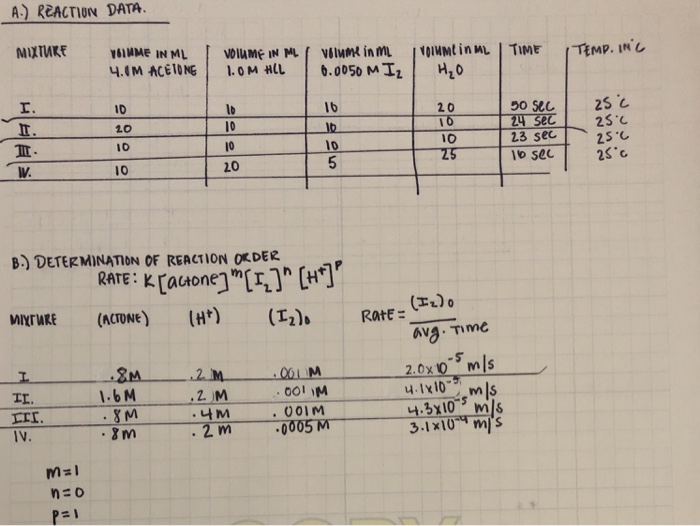 A.) REACTION DATA.
MIXTURE VOLUME IN ML VOLUME IN ML VOLUME in mL VOLUME in ML TIME TEMP. IN °C
4.0M ACETONE 1.0M HCL 0.0050 M I2 H2O
I. 10 10 10 20 50 sec 25°C
II. 20 10 10 10 24 sec 25°C
III. 10 10 10 10 23 sec 25°C
IV. 10 20 5 25 16 sec 25°C
B.) DETERMINATION OF REACTION ORDER
RATE: K[actone]^m [I2]^n [H+]^p
MIXTURE (ACTONE) (H+) (I2)0 RATE = (I2)0
avg. Time
I .8M .2 M .001 M 2.0x10^-5 m/s
II. 1.6M .2 M .001M 4.1x10^-5 m/s
III. .8M .4M .001M 4.3x10^-5 m/s
IV. .8m .2m .0005M 3.1x10^-4 m/s
m=1
n=0
p=1
COPY